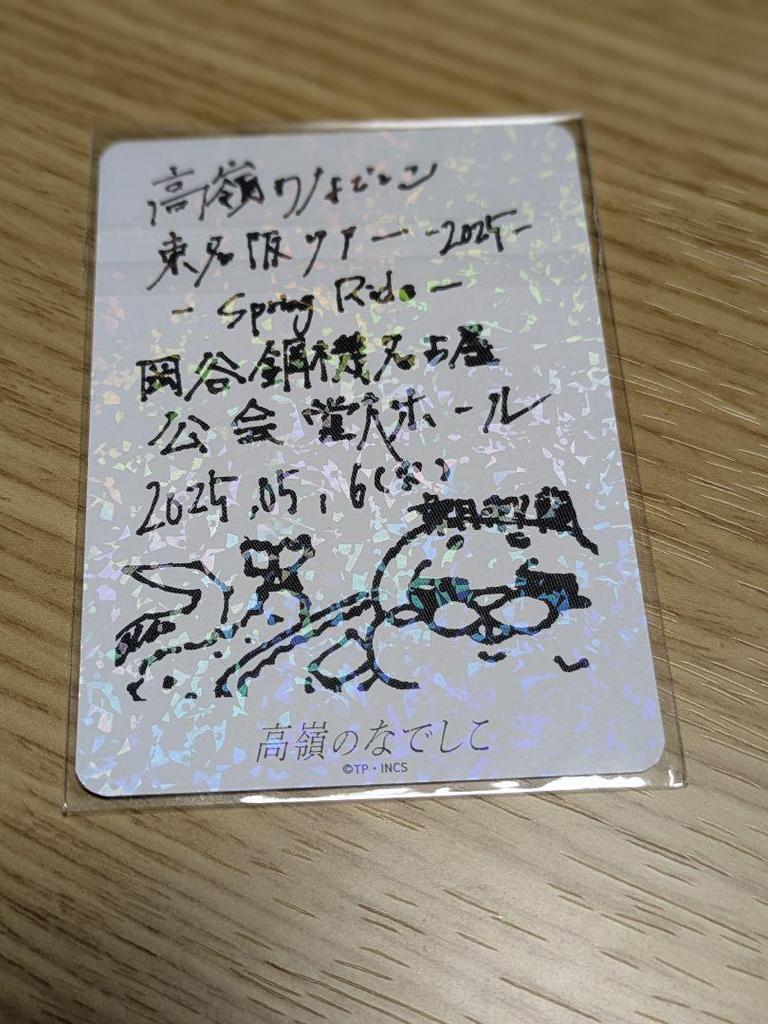 高嶺のなでしこ
東名阪ツアー -2025-
- Spring Ride -
岡谷鋼機名古屋
公会堂大ホール
2025.05.6(火)
高嶺のなでしこ
©TP・INCS